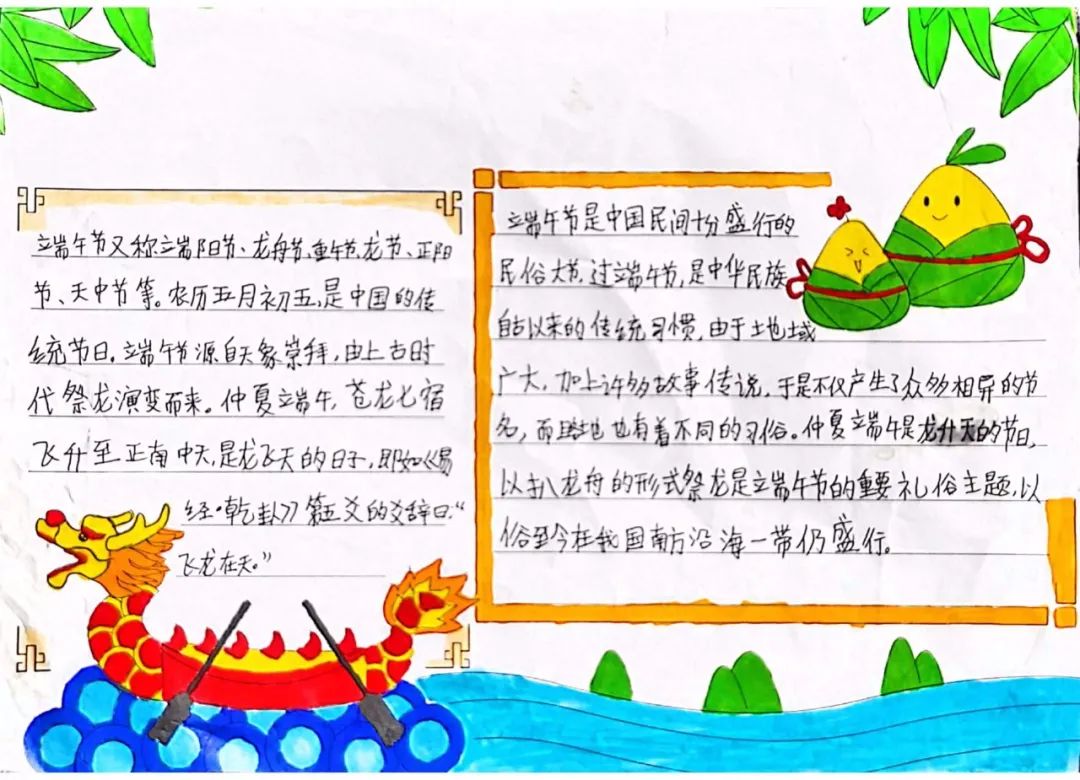 端午节又称端阳节、龙舟节、重午节、龙节、正阳
节、天中节等。农历五月初五,是中国的传
统节日。端午节源自天象崇拜,由上古时
代祭龙演变而来。仲夏端午,苍龙七宿
飞升至正南中天,是龙飞天的日子,即如《易
经·乾卦》第五爻的爻辞曰:“
飞龙在天。”
端午节是中国民间十分盛行的
民俗大节,过端午节,是中华民族
自古以来的传统习惯,由于地域
广大,加上许多故事传说,于是不仅产生了众多相异的节
名,而且各地也有着不同的习俗。仲夏端午是龙升天的节日,
以扒龙舟的形式祭龙是端午节的重要礼俗主题,以
俗至今在我国南方沿海一带仍盛行。